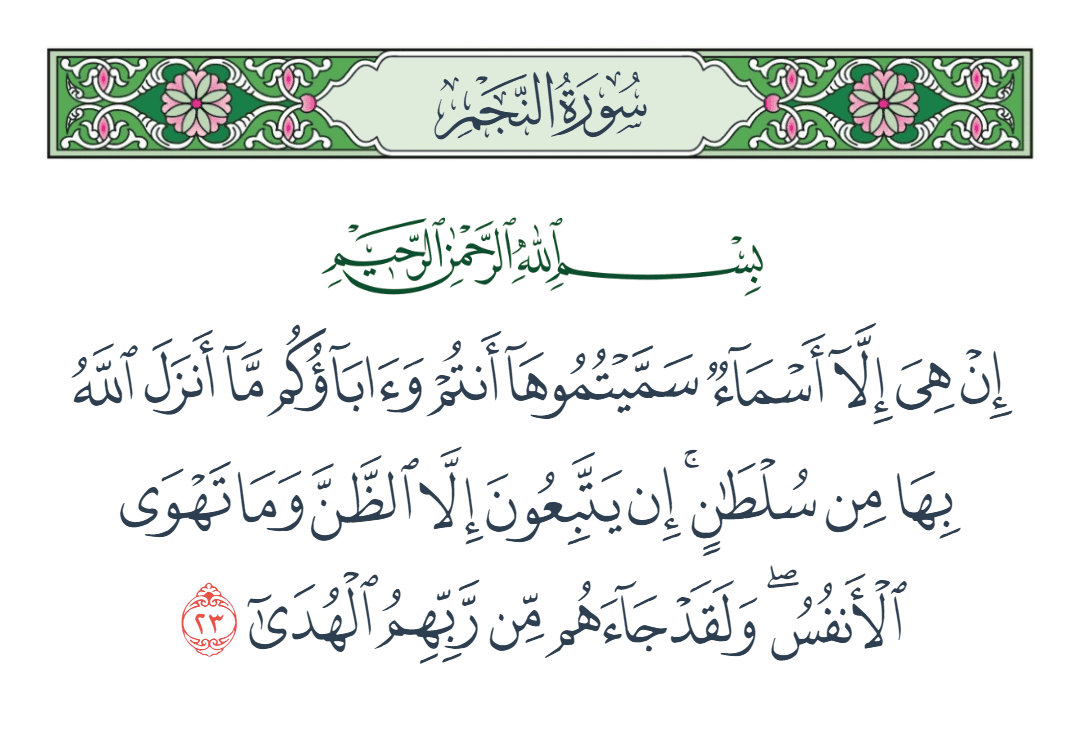 سُورَةُ النَّجْمِ
بِسْمِ ٱللَّهِ ٱلرَّحْمَٰنِ ٱلرَّحِيمِ
إِنْ هِىَ إِلَّآ أَسْمَآءٌ سَمَّيْتُمُوهَآ أَنتُمْ وَءَابَآؤُكُم مَّآ أَنزَلَ ٱللَّهُ
بِهَا مِن سُلْطَٰنٍ ۚ إِن يَتَّبِعُونَ إِلَّا ٱلظَّنَّ وَمَا تَهْوَى
ٱلْأَنفُسُ ۖ وَلَقَدْ جَآءَهُم مِّن رَّبِّهِمُ ٱلْهُدَىٰٓ ٢٣